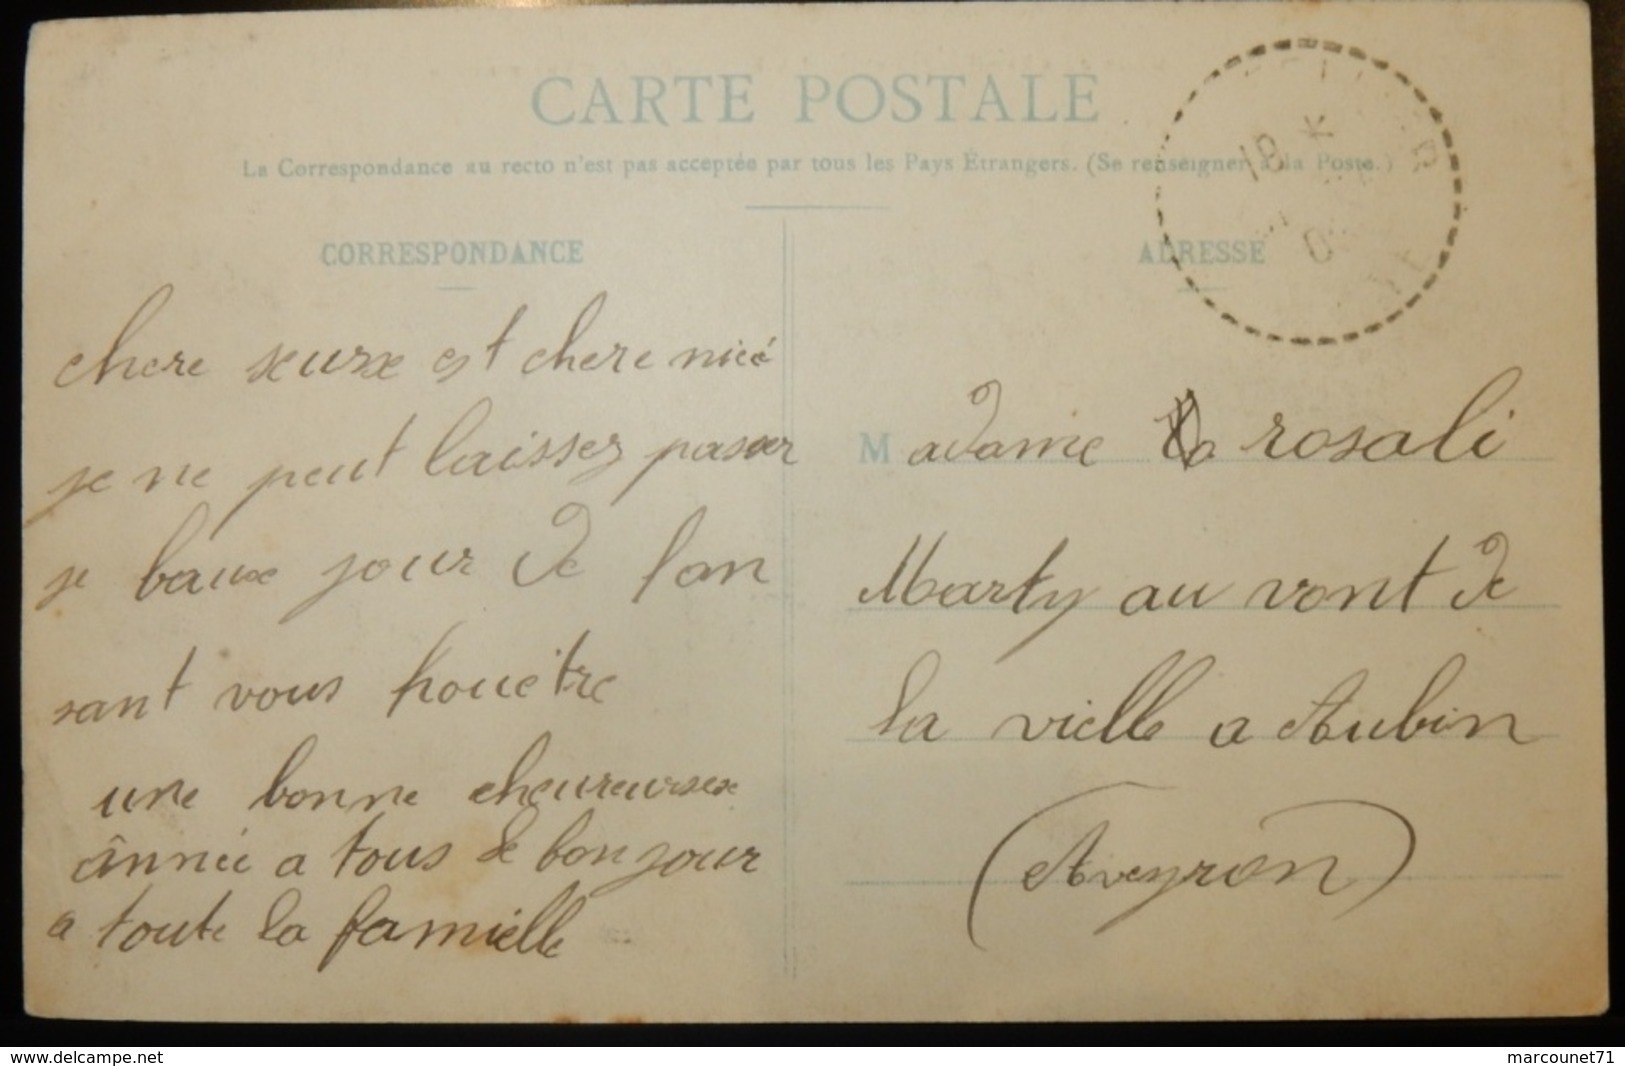 CARTE POSTALE
La Correspondance au recto n'est pas acceptée par tous les Pays Étrangers. (Se renseigner à la Poste.)
CORRESPONDANCE
chere seurx est chere nicé
je ne peut laissez passer
se baux jour de l'an
sant vous houetre
une bonne eheureuse
ânnée a tous le bonjour
a toute la famielle
ADRESSE
Madame rosali
Marty au vont de
la vielle a Aubin
(Aveyron)
www.delcampe.net
marcounet71